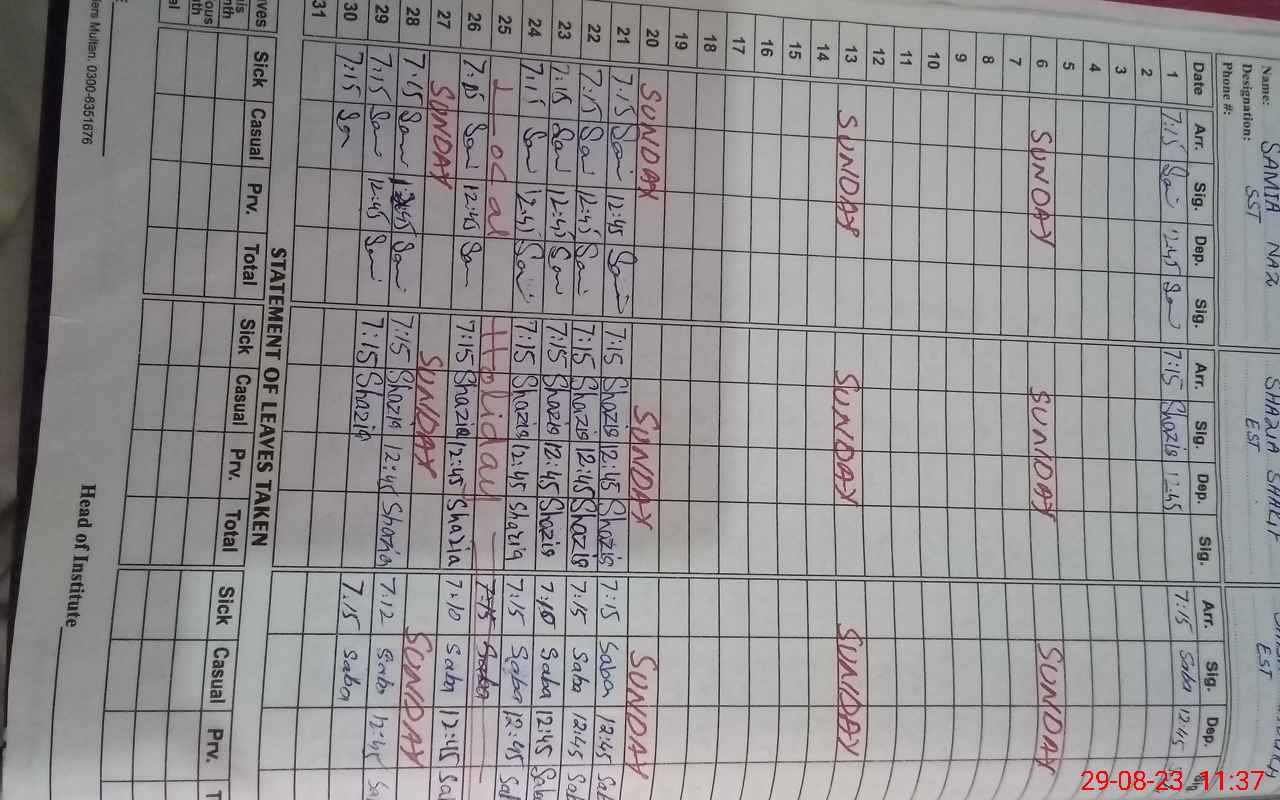 Name: SAMIA NAZ SHAZIA SHARIF
Designation: SST EST EST
Phone #:
Date Arr. Sig. Dep. Sig. Arr. Sig. Dep. Sig. Arr. Sig. Dep. Sig
1 7:15 Sam 12:45 Sam 7:15 Shazia 12:45 7:15 Saba 12:45
2
3
4
5
6 SUNDAY SUNDAY SUNDAY
7
8
9
10
11
12
13 SUNDAY SUNDAY SUNDAY
14
15
16
17
18
19
20 SUNDAY SUNDAY SUNDAY
21 7:15 Sam 12:45 Sam 7:15 Shazia 12:45 Shazia 7:15 Saba 12:45 Sab
22 7:15 Sam 12:45 Sam 7:15 Shazia 12:45 Shazia 7:15 Saba 12:45 Sab
23 7:15 Sam 12:45 Sam 7:15 Shazia 12:45 Shazia 7:10 Saba 12:45 Saba
24 7:15 Sam 12:45 Sam 7:15 Shazia 12:45 Shazia 7:15 Saba 12:45 Sal
25 Local Holiday 7:15 Saba
26 7:15 Sam 12:45 Sam 7:15 Shazia 12:45 Shazia 7:10 Saba 12:45 Sal
27 SUNDAY SUNDAY SUNDAY
28 7:15 Sam 12:45 Sam 7:15 Shazia 12:45 Shazia 7:12 Saba 12:45 Sa
29 7:15 Sam 12:45 Sam 7:15 Shazia 7.15 Saba
30 7:15 Sam
31
STATEMENT OF LEAVES TAKEN
ves Sick Casual Prv. Total Sick Casual Prv. Total Sick Casual Prv. T
his
nth
ous
th
al
Head of Institute
ders Multan. 0300-6351676
29-08-23 11:37